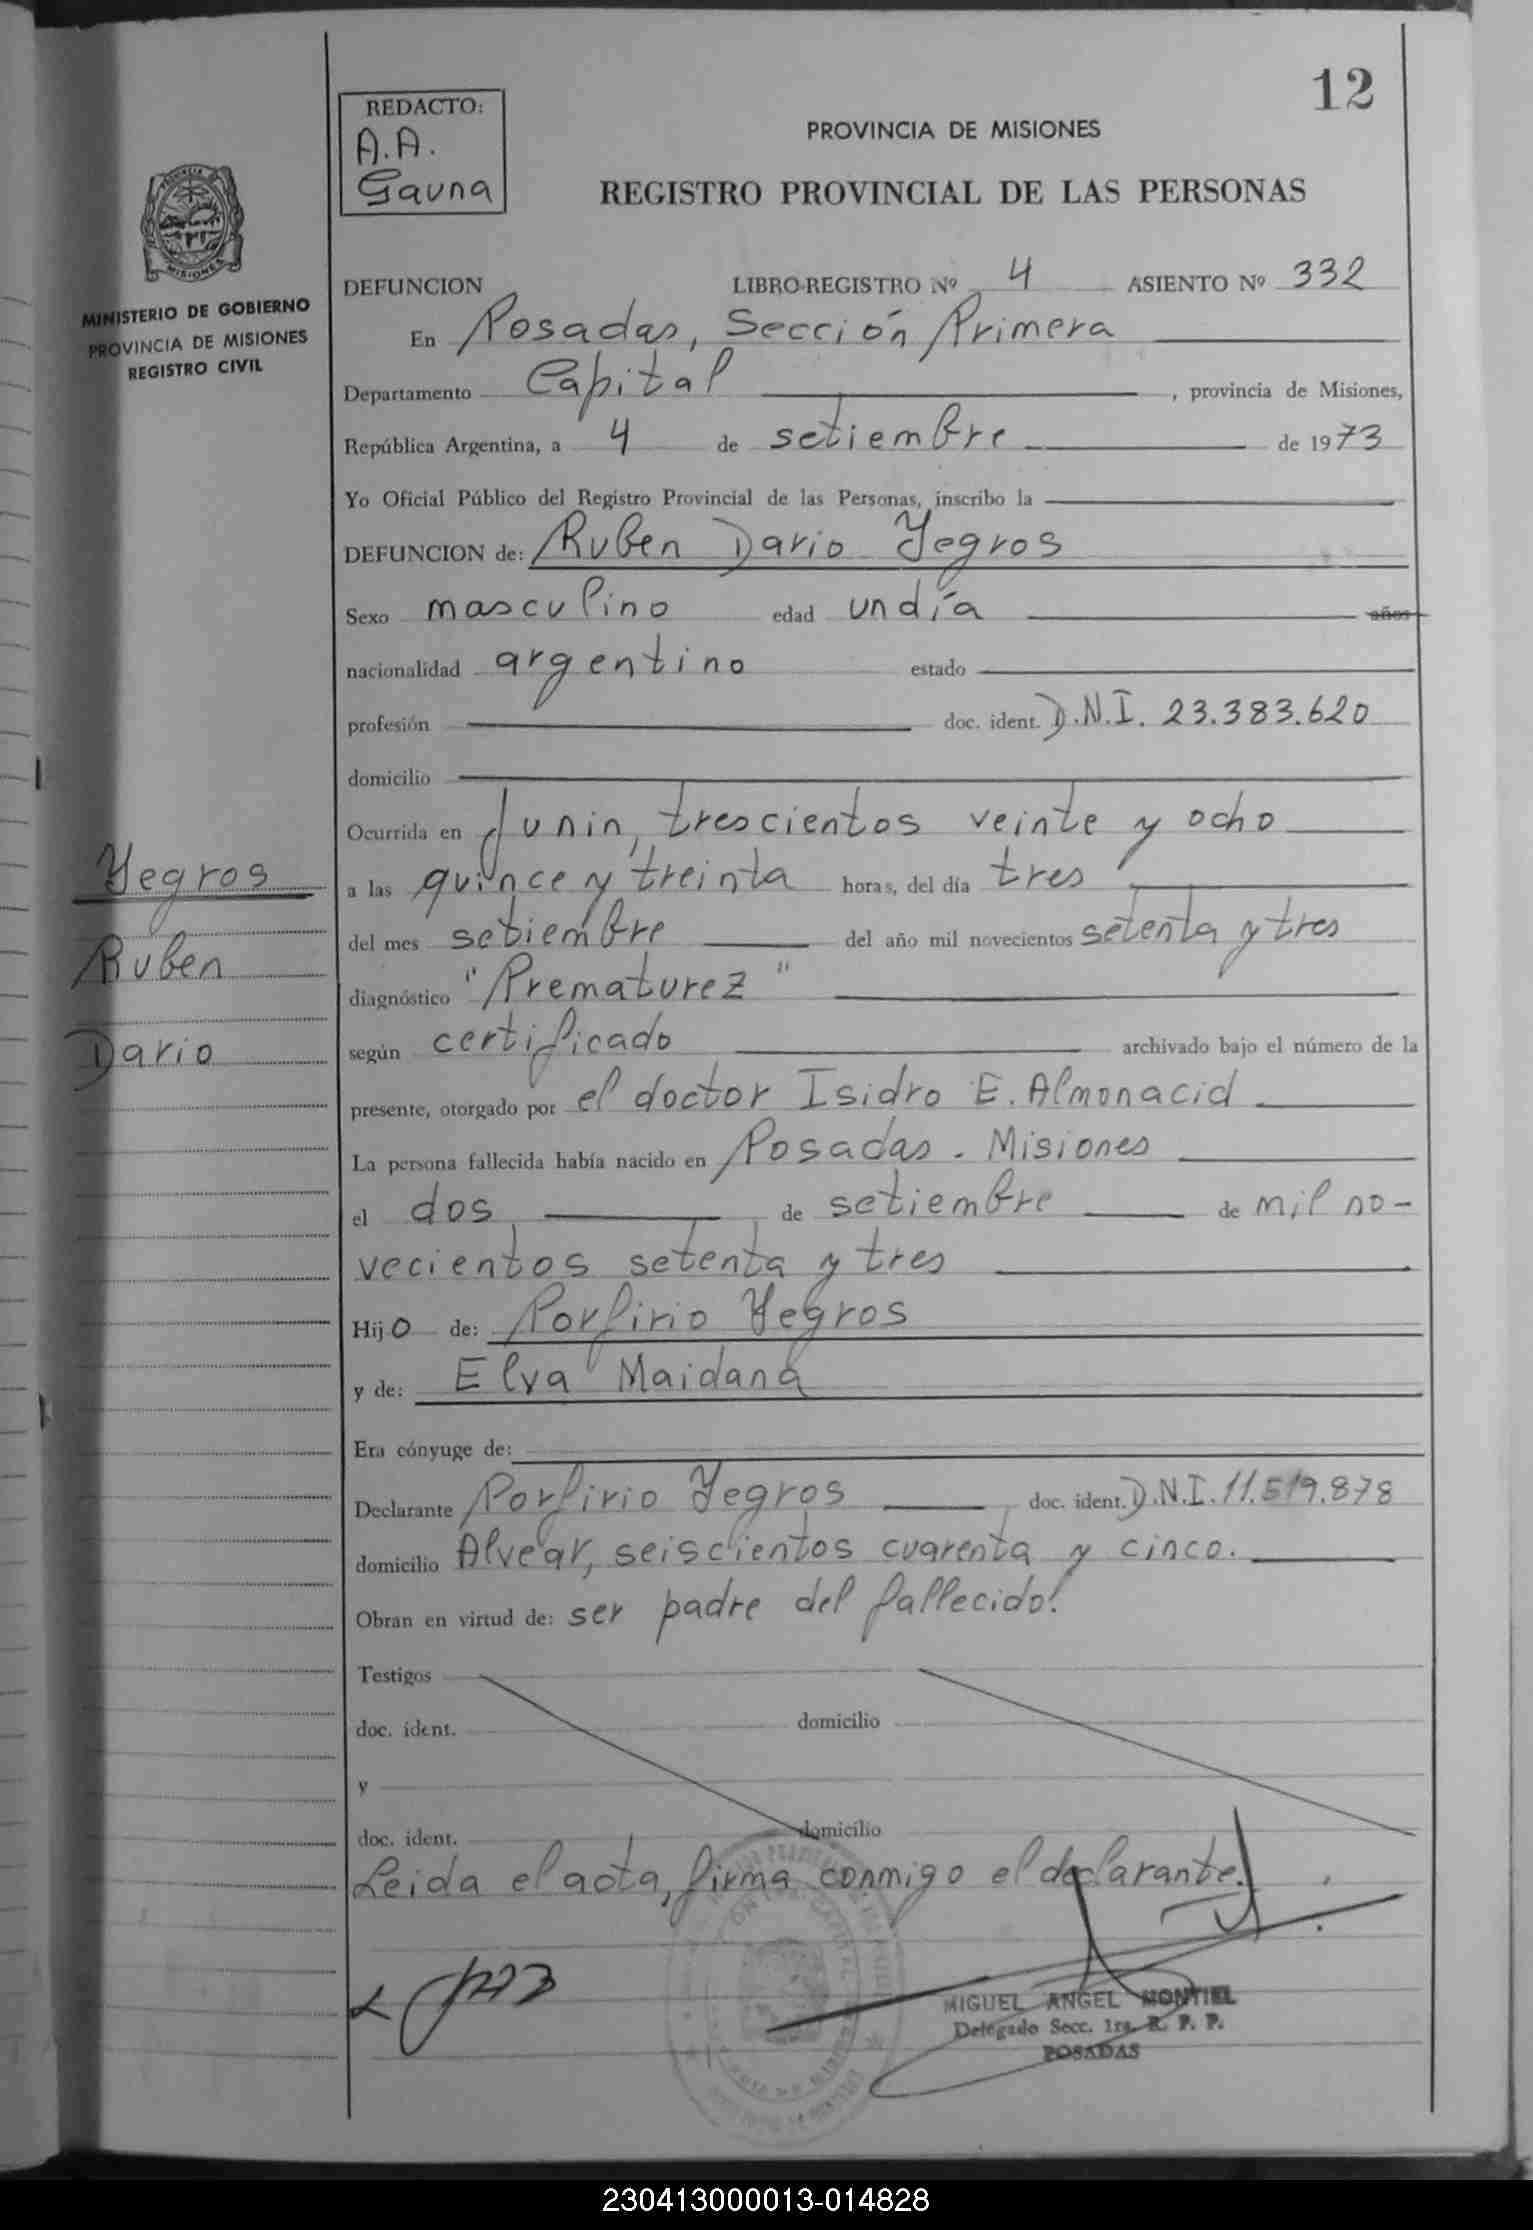 12
REDACTO:
A.A.
Gauna
PROVINCIA DE MISIONES
REGISTRO PROVINCIAL DE LAS PERSONAS
MISIONES
MINISTERIO DE GOBIERNO
PROVINCIA DE MISIONES
REGISTRO CIVIL
DEFUNCION LIBRO-REGISTRO Nº 4 ASIENTO Nº 332
En Posadas, Sección Primera
Departamento Capital , provincia de Misiones,
República Argentina, a 4 de setiembre de 1973
Yo Oficial Público del Registro Provincial de las Personas, inscribo la
DEFUNCION de: Ruben Dario Yegros
Sexo masculino edad un día años
nacionalidad argentino estado
profesión doc. ident. D.N.I. 23.383.620
domicilio
Ocurrida en Junin, trescientos veinte y ocho
a las quince y treinta horas, del día tres
del mes setiembre del año mil novecientos setenta y tres
diagnóstico "Prematurez"
según certificado archivado bajo el número de la
presente, otorgado por el doctor Isidro E. Almonacid
La persona fallecida había nacido en Posadas - Misiones
el dos de setiembre de mil no-
vecientos setenta y tres
Hijo de: Porfirio Yegros
y de: Elva Maidana
Era cónyuge de:
Declarante Porfirio Yegros doc. ident. D.N.I. 11.519.878
domicilio Alvear, seiscientos cuarenta y cinco.
Obran en virtud de: ser padre del fallecido!
Testigos
doc. ident. domicilio
y
doc. ident. domicilio
Leida el acta, firma conmigo el declarante.
Yegros
Ruben
Dario
MIGUEL ANGEL MONTIEL
Delegado Secc. 1ra. R. P. P.
POSADAS
230413000013-014828